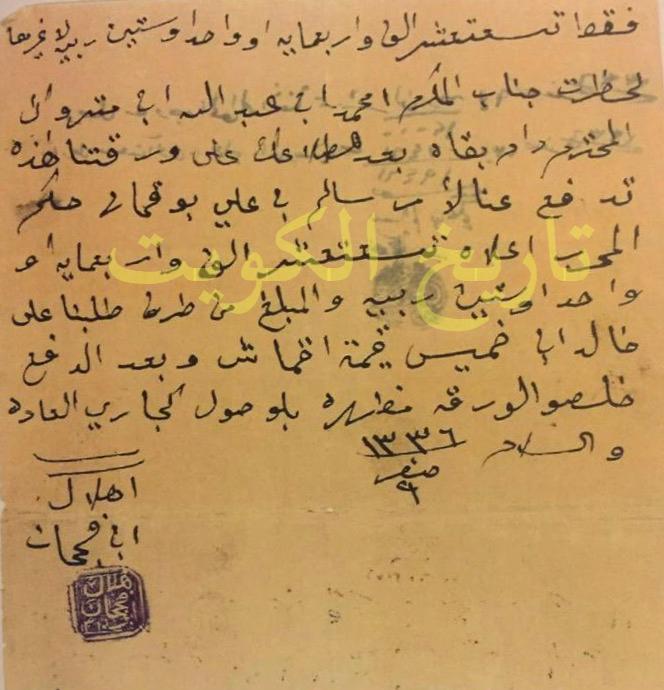 فقط تسعتعشر الف واربعمايه او واحد اوستين ربيه لا غيرها
لحظرت جناب المكرم امحمد ابي عبد الله ابي متروك
المحترم دام بقاه بعد اطلاعك على ورقتنا هذه
تدفع عنا لأمر سالم بي علي بوقماز حكم
المحرر اعلاه تسعتعشر الف واربعمايه او
واحد اوستين ربيه والمبلغ من طرف طلبنا على
خالد ابي خميس قيمة اقماش وبعد الدفع
خلصو الورقه منظهره بلوصول الجاري العاده
والسلام ١٣٣٦
صفر
٩
اهلال
ابي فجحان
تاريخ الكويت